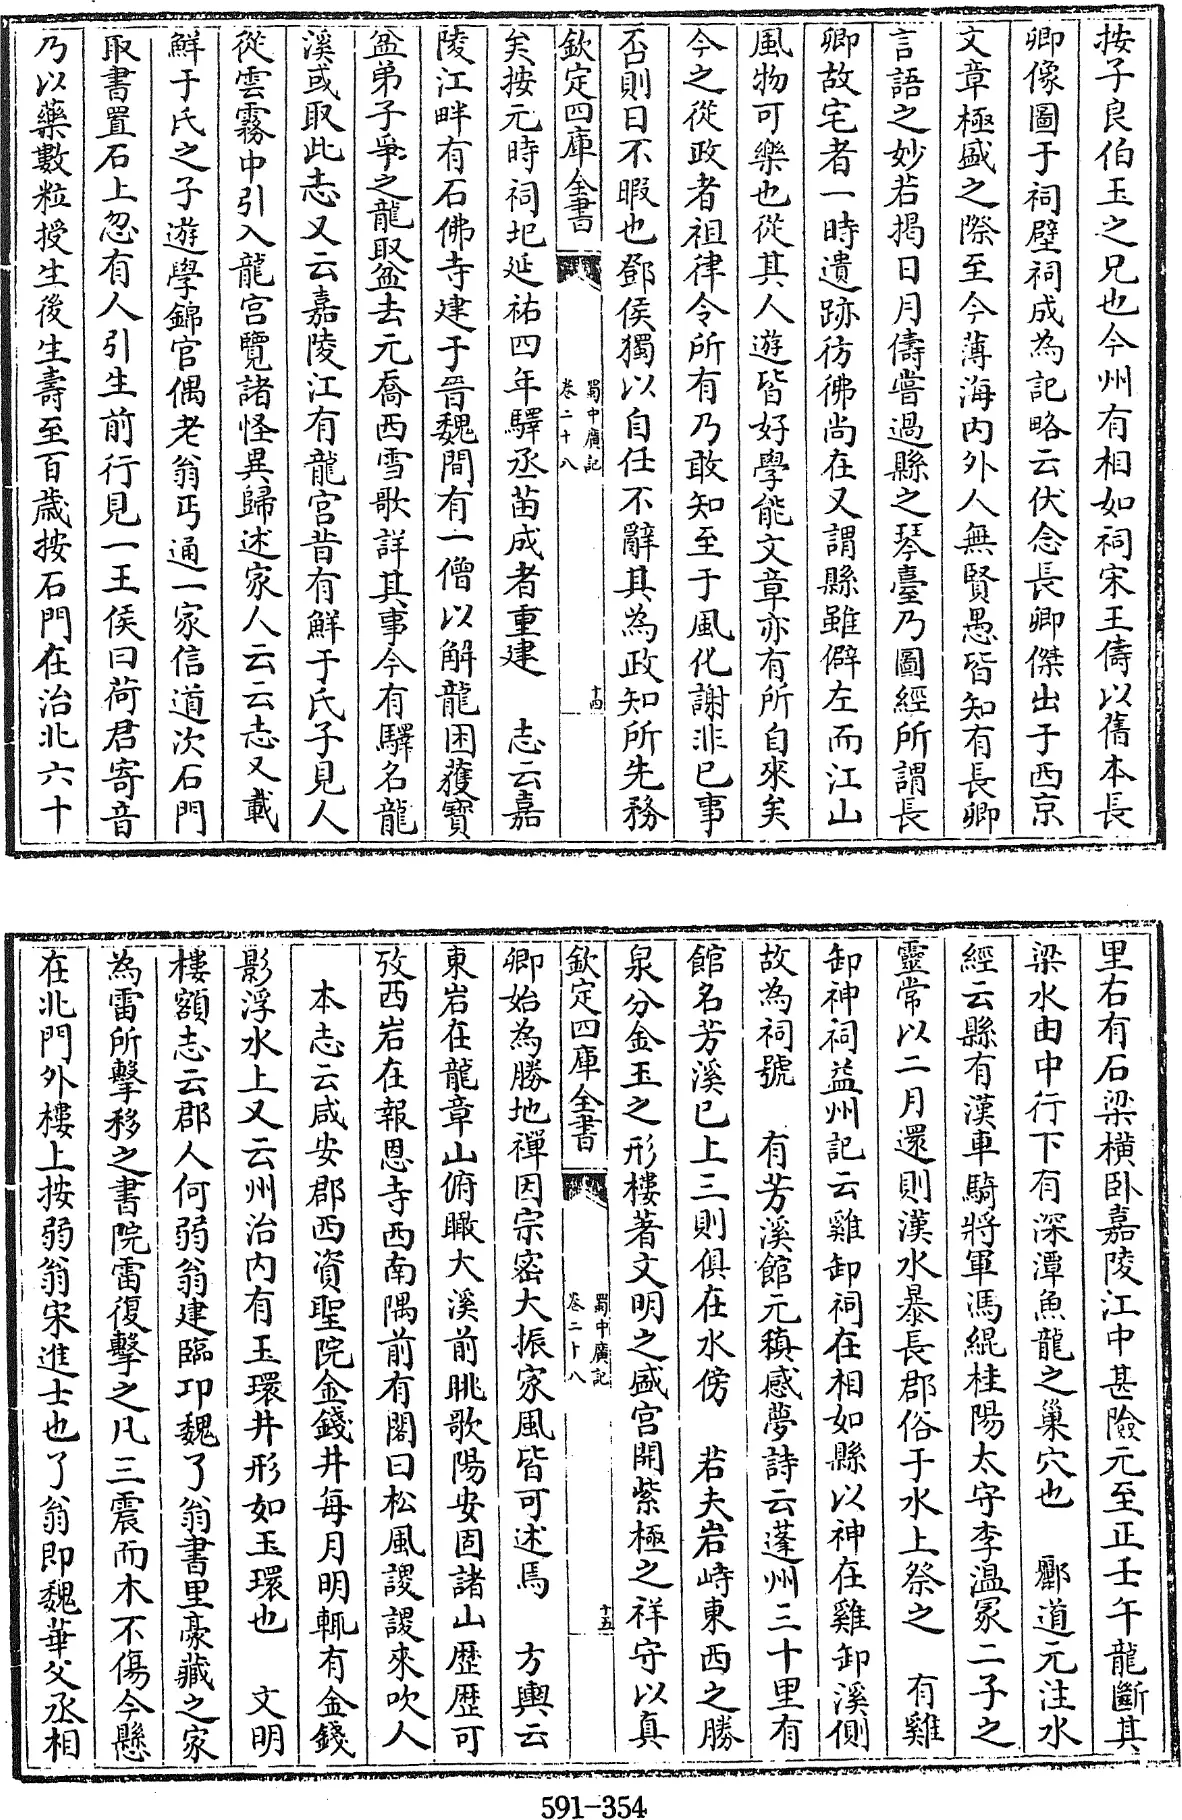 按子良伯玉之兄也今州有相如祠宋王儔以舊本長
卿像圖于祠壁祠成為記略云伏念長卿傑出于西京
文章極盛之際至今薄海内外人無賢愚皆知有長卿
言語之妙若揭日月儔嘗過縣之琴臺乃圖經所謂長
卿故宅者一時遺跡彷彿尚在又謂縣雖僻左而江山
風物可樂也從其人遊皆好學能文章亦有所自來矣
今之從政者祖律令所有乃敢知至于風化謝非已事
否則日不暇也鄧侯獨以自任不辭其為政知所先務
欽定四庫全書
蜀中廣記
卷二十八
十四
矣按元時祠圮延祐四年驛丞苗成者重建　志云嘉
陵江畔有石佛寺建于晉魏間有一僧以解龍困獲寶
盆弟子爭之龍取盆去元喬西雪歌詳其事今有驛名龍
溪或取此志又云嘉陵江有龍宫昔有鮮于氏子見人
從雲霧中引入龍宫覽諸怪異歸述家人云云志又載
鮮于氏之子遊學錦官偶老翁丐通一家信道次石門
取書置石上忽有人引生前行見一王侯曰荷君寄音
乃以藥數粒授生後生壽至百歳按石門在治北六十
里右有石梁横卧嘉陵江中甚險元至正壬午龍斷其
梁水由中行下有深潭魚龍之巢穴也　酈道元注水
經云縣有漢車騎將軍馮緄桂陽太守李温冢二子之
靈常以二月還則漢水暴長郡俗于水上祭之　有雞
卸神祠益州記云雞卸祠在相如縣以神在雞卸溪側
故為祠號　有芳溪館元稹感夢詩云蓬州三十里有
館名芳溪已上三則俱在水傍　若夫岩峙東西之勝
泉分金玉之形樓著文明之盛宫開紫極之祥守以真
欽定四庫全書
蜀中廣記
卷二十八
十五
卿始為勝地禪因宗密大振家風皆可述焉　方輿云
東岩在龍章山俯瞰大溪前眺歌陽安固諸山歴歴可
攷西岩在報恩寺西南隅前有閣曰松風謖謖來吹人
本志云咸安郡西資聖院金錢井每月明輒有金錢
影浮水上又云州治内有玉環井形如玉環也　文明
樓額志云郡人何弱翁建臨卭魏了翁書里豪藏之家
為雷所擊移之書院雷復擊之凡三震而木不傷今懸
在北門外樓上按弱翁宋進士也了翁即魏華父丞相
591-354